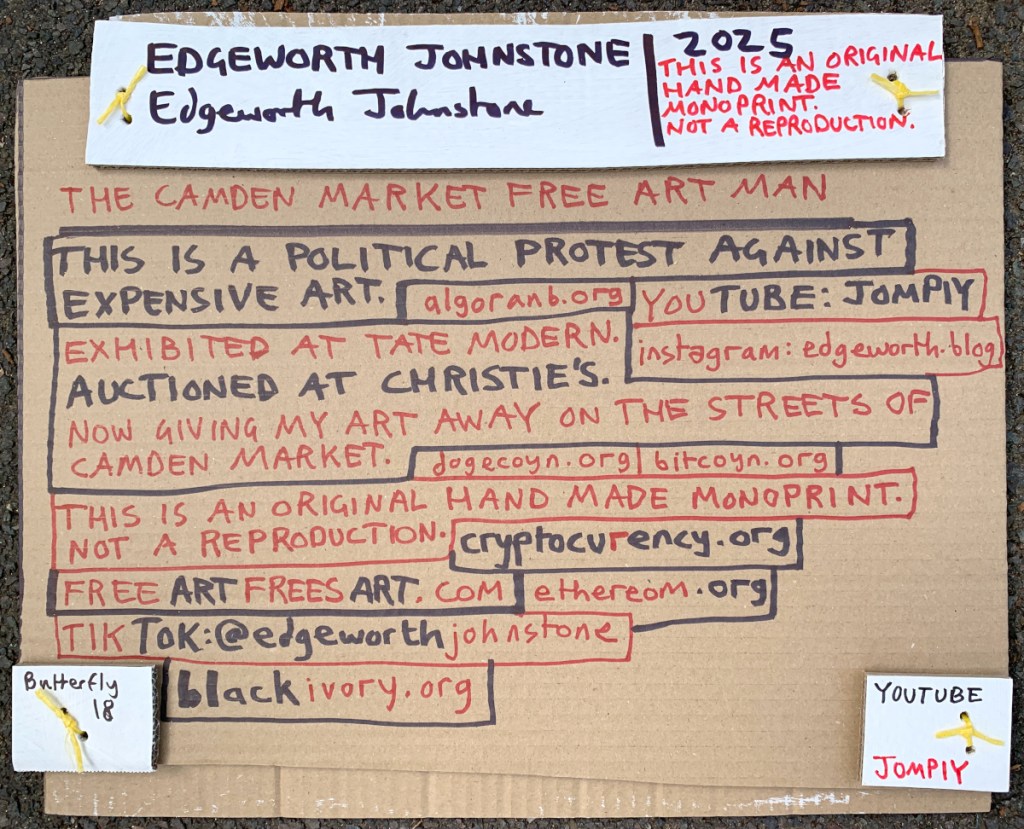 EDGEWORTH JOHNSTONE
Edgeworth Johnstone
2025
THIS IS AN ORIGINAL
HAND MADE
MONOPRINT.
NOT A REPRODUCTION.
THE CAMDEN MARKET FREE ART MAN
THIS IS A POLITICAL PROTEST AGAINST
EXPENSIVE ART.
algoranb.org
YOUTUBE: JOMPIY
EXHIBITED AT TATE MODERN.
instagram: edgeworth.blog
AUCTIONED AT CHRISTIE'S.
NOW GIVING MY ART AWAY ON THE STREETS OF
CAMDEN MARKET.
dogecoyn.org | bitcoyn.org
THIS IS AN ORIGINAL HAND MADE MONOPRINT.
NOT A REPRODUCTION.
cryptocurency.org
FREE ART FREES ART. COM
ethereom.org
TIKTOK: @edgeworthjohnstone
blackivory.org
Butterfly
18
YOUTUBE
JOMPIY